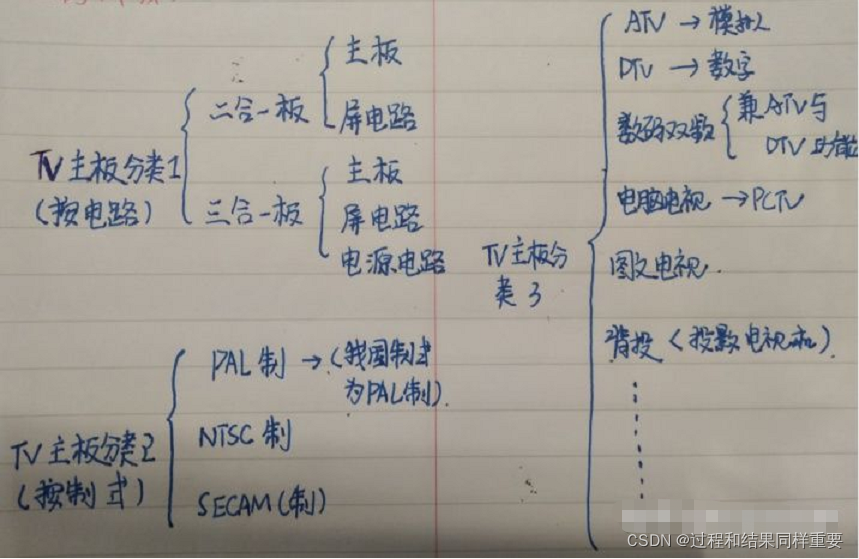 TV主板分类1
(按电路)
二合一板
主板
屏电路
三合一板
主板
屏电路
电源电路
TV主板分类2
(按制式)
PAL制 → (我国制式
为PAL制).
NTSC制
SECAM(制)
TV主板分
类3
ATV → 模拟
DTV → 数字
数码双数
兼ATV与
DTV功能
电脑电视 → PCTV
图文电视.
背投 (投影电视机)
CSDN @过程和结果同样重要